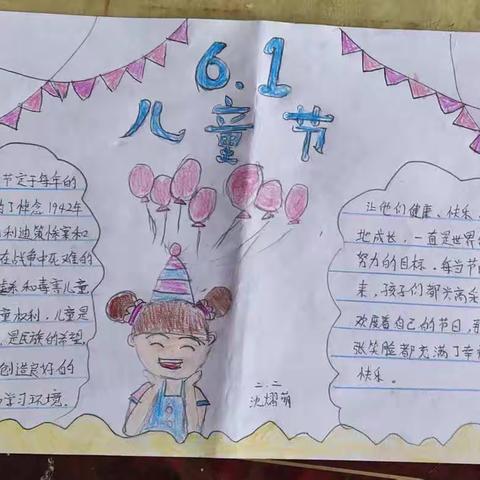 6.1
儿童节
节定于每年的
了悼念1942年
利迪策惨案和
在战争中死难的
和毒害儿童
童权利，儿童是
是民族的希望
创造良好的
学习环境.
让他们健康、快乐
地成长，一直是世界
努力的目标，每当节
来，孩子们都兴高采
欢度着自己的节日，那
张笑脸都充满了幸
快乐。
二.二
沈熠萌